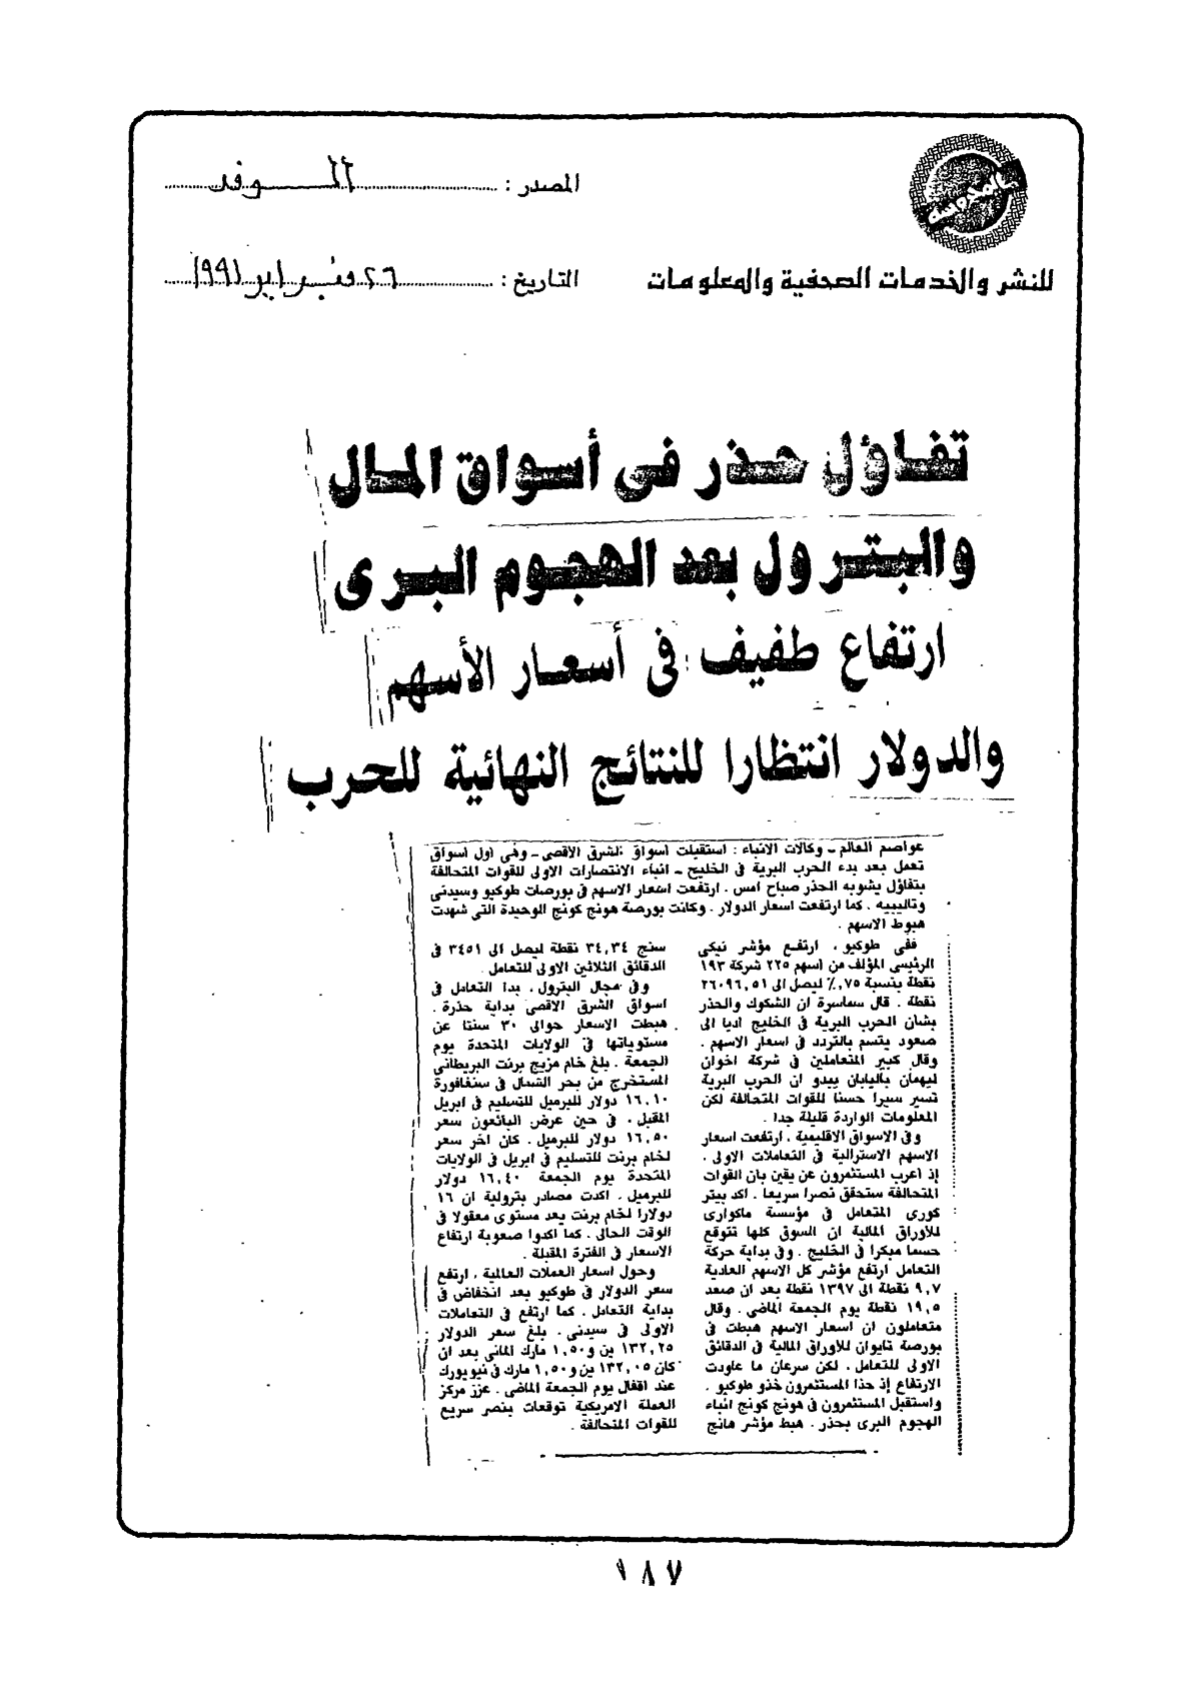 المصدر : الوفد
للنشر والخدمات الصحفية والمعلومات
التاريخ : ٢٦ فبراير ١٩٩١
تفاؤل حذر فى أسواق المال
والبترول بعد الهجوم البرى
ارتفاع طفيف فى أسعار الأسهم
والدولار انتظارا للنتائج النهائية للحرب
عواصم العالم - وكالات الانباء : استقبلت اسواق الشرق الاقصى - وهى اول اسواق
تعمل بعد بدء الحرب البرية فى الخليج - انباء الانتصارات الاولى للقوات المتحالفة
بتفاؤل يشوبه الحذر صباح امس . ارتفعت اسعار الاسهم فى بورصات طوكيو وسيدنى
وتاليبيه . كما ارتفعت اسعار الدولار . وكانت بورصة هونج كونج الوحيدة التى شهدت
هبوط الاسهم .
ففى طوكيو ، ارتفع مؤشر نيكى
الرئيسى المؤلف من اسهم ٢٢٥ شركة ١٩٣
نقطة بنسبة ٧٥,٪ ليصل الى ٢٦٠٩٦,٥١
نقطة . قال سماسرة ان الشكوك والحذر
بشان الحرب البرية فى الخليج اديا الى
صعود يتسم بالتردد فى اسعار الاسهم .
وقال كبير المتعاملين فى شركة اخوان
ليهمان باليابان يبدو ان الحرب البرية
تسير سيرا حسنا للقوات المتحالفة لكن
المعلومات الواردة قليلة جدا .
وفى الاسواق الاقليمية ، ارتفعت اسعار
الاسهم الاسترالية فى التعاملات الاولى .
إذ اعرب المستثمرون عن يقين بان القوات
المتحالفة ستحقق نصرا سريعا . اكد بيتر
كورى المتعامل فى مؤسسة ماكوارى
للأوراق المالية ان السوق كلها تتوقع
حسما مبكرا فى الخليج . وفى بداية حركة
التعامل ارتفع مؤشر كل الاسهم العادية
٩,٧ نقطة الى ١٣٩٧ نقطة بعد ان صعد
١٩,٥ نقطة يوم الجمعة الماضى . وقال
متعاملون ان اسعار الاسهم هبطت فى
بورصة تايوان للأوراق المالية فى الدقائق
الاولى للتعامل ، لكن سرعان ما عاودت
الارتفاع إذ حذا المستثمرون حذو طوكيو .
واستقبل المستثمرون فى هونج كونج انباء
الهجوم البرى بحذر . هبط مؤشر هانج
سنج ٣٤,٣٤ نقطة ليصل الى ٣٤٥١ فى
الدقائق الثلاثين الاولى للتعامل .
وفى مجال البترول ، بدا التعامل فى
اسواق الشرق الاقصى بداية حذرة .
هبطت الاسعار حوالى ٣٠ سنتا عن
مستوياتها فى الولايات المتحدة يوم
الجمعة . بلغ خام مزيج برنت البريطانى
المستخرج من بحر الشمال فى سنغافورة
١٦,١٠ دولار للبرميل للتسليم فى ابريل
المقبل ، فى حين عرض البائعون سعر
١٦,٥٠ دولار للبرميل . كان اخر سعر
لخام برنت للتسليم فى ابريل فى الولايات
المتحدة يوم الجمعة ١٦,٤٠ دولار
للبرميل . اكدت مصادر بترولية ان ١٦
دولارا لخام برنت يعد مستوى معقولا فى
الوقت الحالى . كما اكدوا صعوبة ارتفاع
الاسعار فى الفترة المقبلة .
وحول اسعار العملات العالمية ، ارتفع
سعر الدولار فى طوكيو بعد انخفاض فى
بداية التعامل . كما ارتفع فى التعاملات
الاولى فى سيدنى . بلغ سعر الدولار
١٣٢,٢٥ ين و١,٥٠ مارك المانى بعد ان
كان ١٣٢,٠٥ ين و١,٥٠ مارك فى نيويورك
عند اقفال يوم الجمعة الماضى . عزز مركز
العملة الامريكية توقعات بنصر سريع
للقوات المتحالفة .
١٨٧